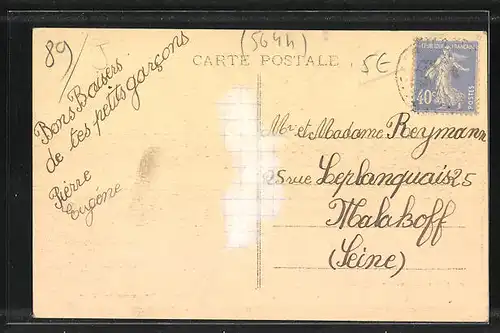 89
(5644)
CARTE POSTALE
5€
REPUBLIQUE FRANÇAISE
40c
POSTES
Bons Baisers
de tes petits garçons
Pierre
Eugène
Mr et Madame Reymann
25 rue Leplanquais 25
Malakoff
(Seine)